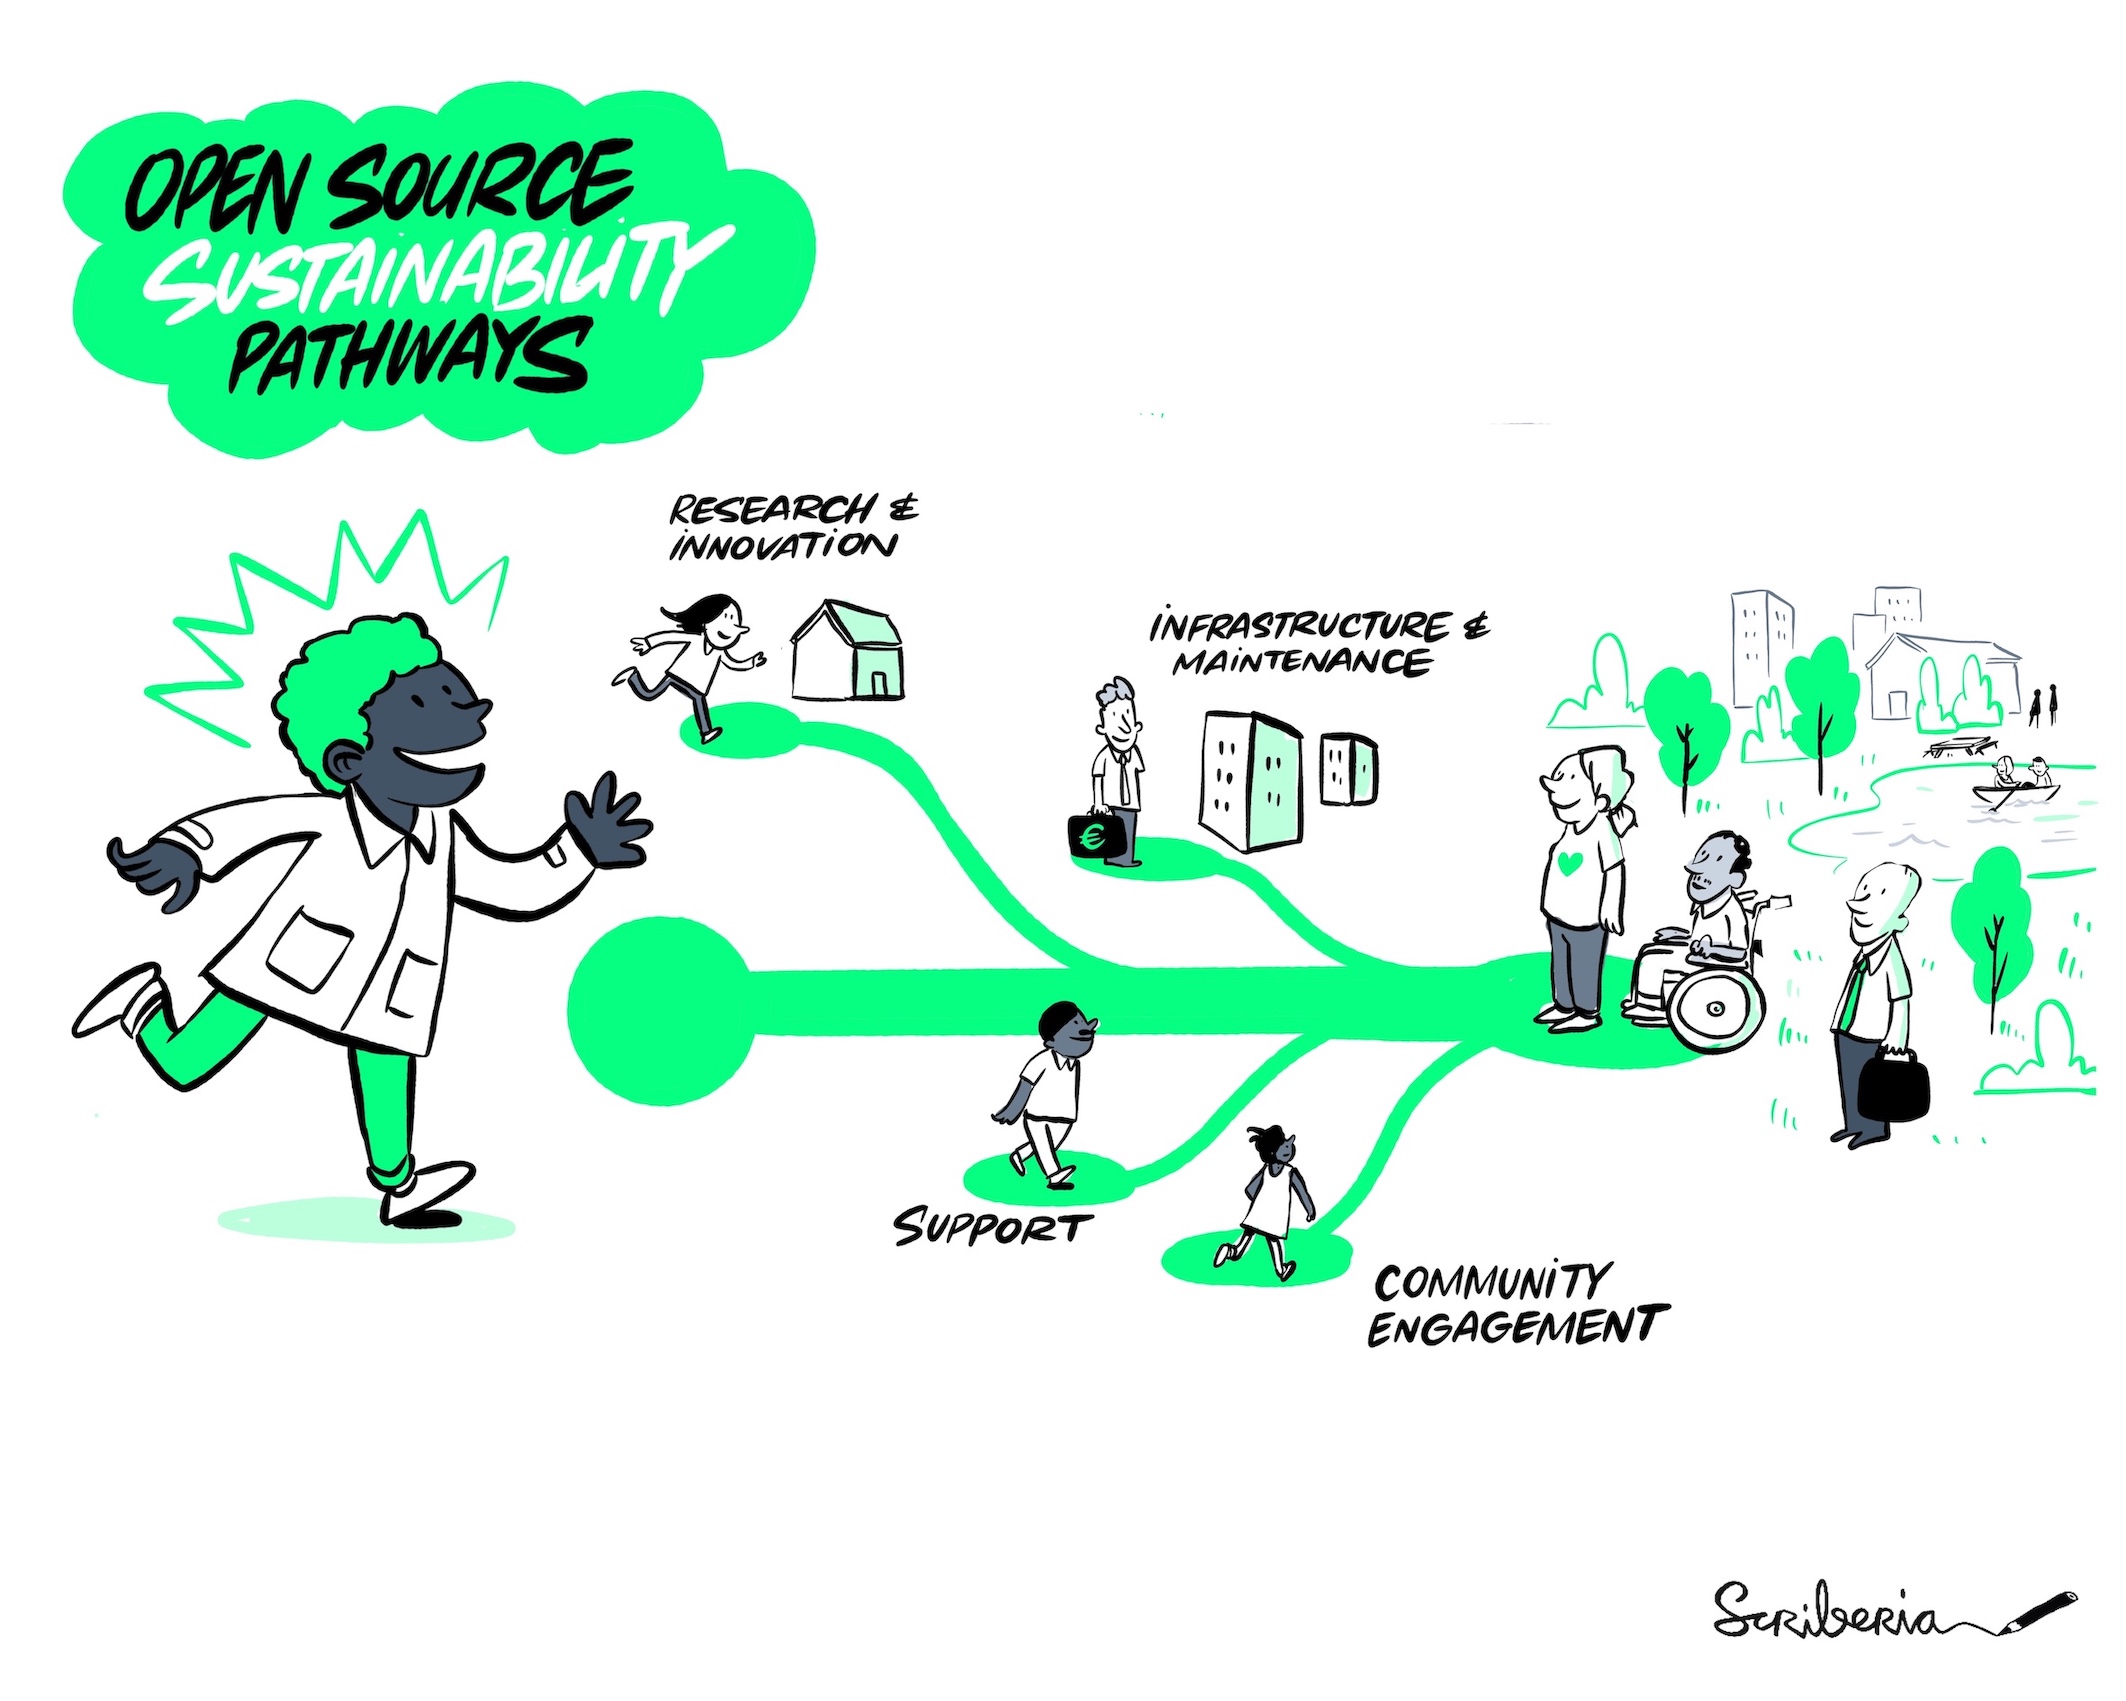 OPEN SOURCE
SUSTAINABILITY
PATHWAYS
RESEARCH &
INNOVATION
INFRASTRUCTURE &
MAINTENANCE
€
SUPPORT
COMMUNITY
ENGAGEMENT
Scriberia